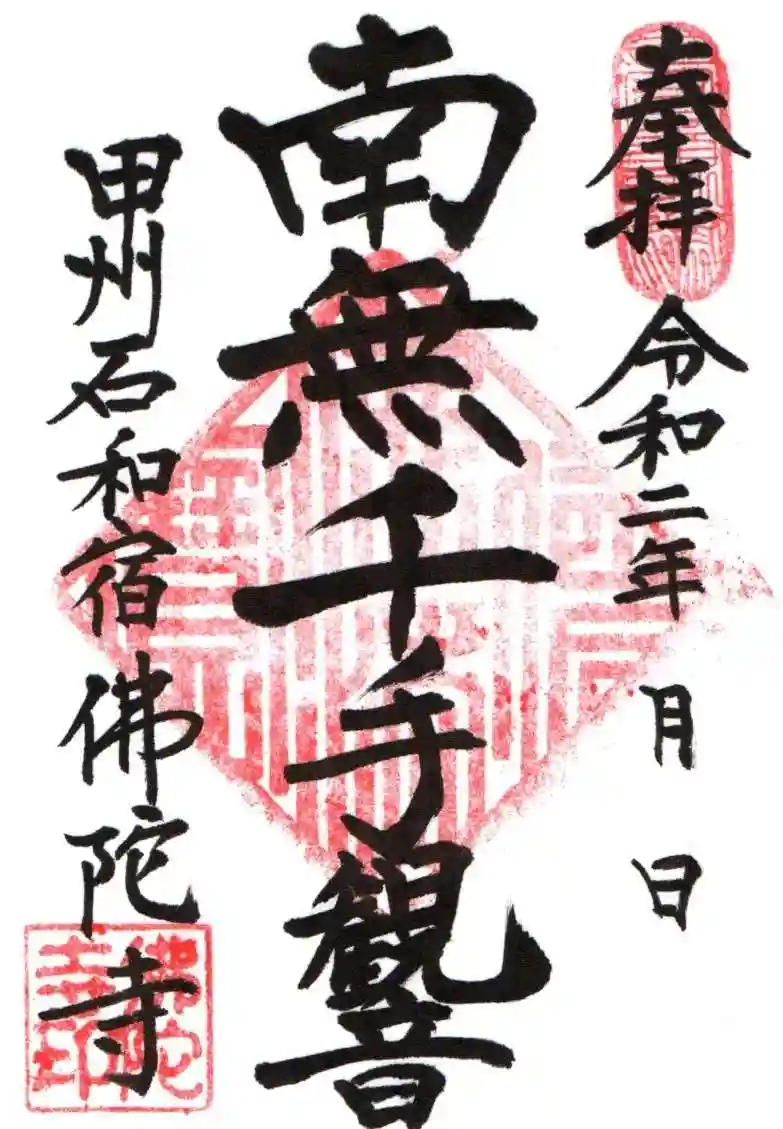 奉拝 令和二年 月 日
南無千手観音
甲州石和宿 佛陀寺
佛陀寺印